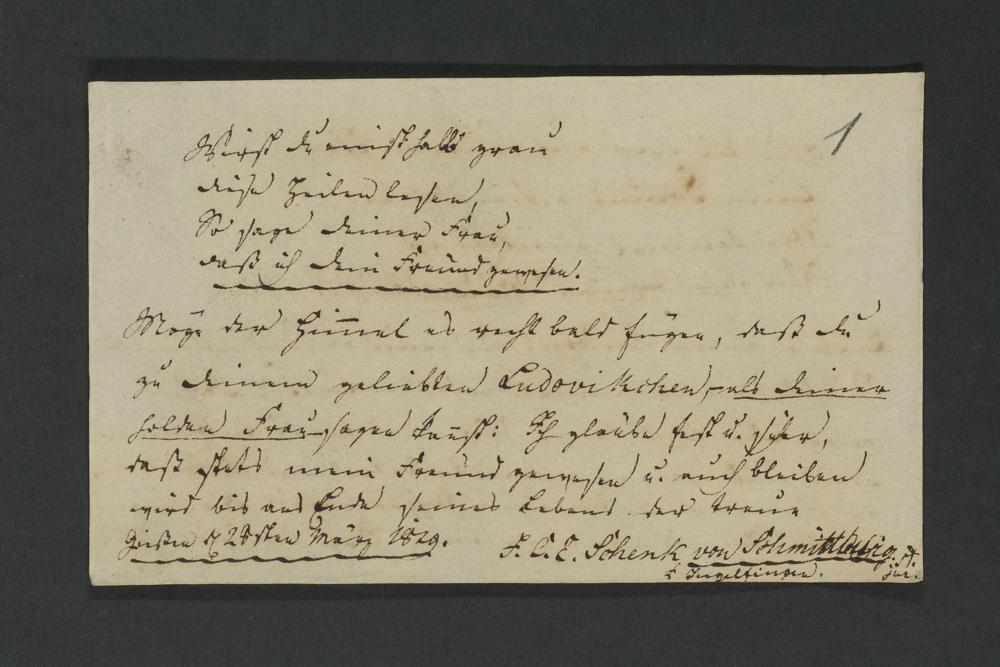 1
Wirst du einst halb grau
diese Zeilen lesen,
So sage deiner Frau,
daß ich dein Freund gewesen.
Möge der Himmel es recht bald fügen, daß du
zu deinem geliebten Ludovikchen, als deiner
holden Frau sagen kannst: Ich glaube fest u. sicher,
daß stets mein Freund gewesen u. auch bleiben
wird bis ans Ende seines Lebens der treue
Gießen d 28sten März 1829.
F. C. E. Schenk von Schmittburg. st. jur.